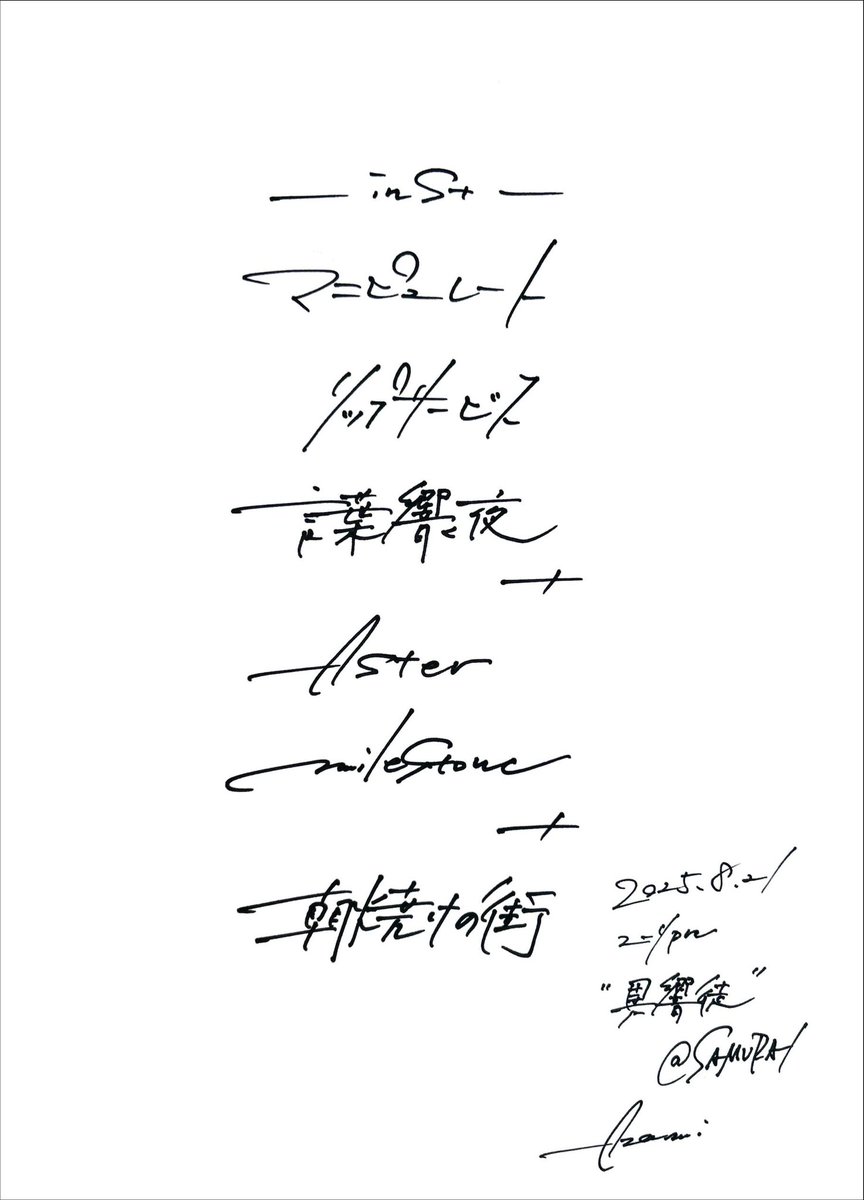 — inSt —
マニピュレート
リップサービス
言葉響く夜
+
Aster
mileStone
+
朝焼けの街
2025.8.21
"異響徒"
@SAMURAI
Azami